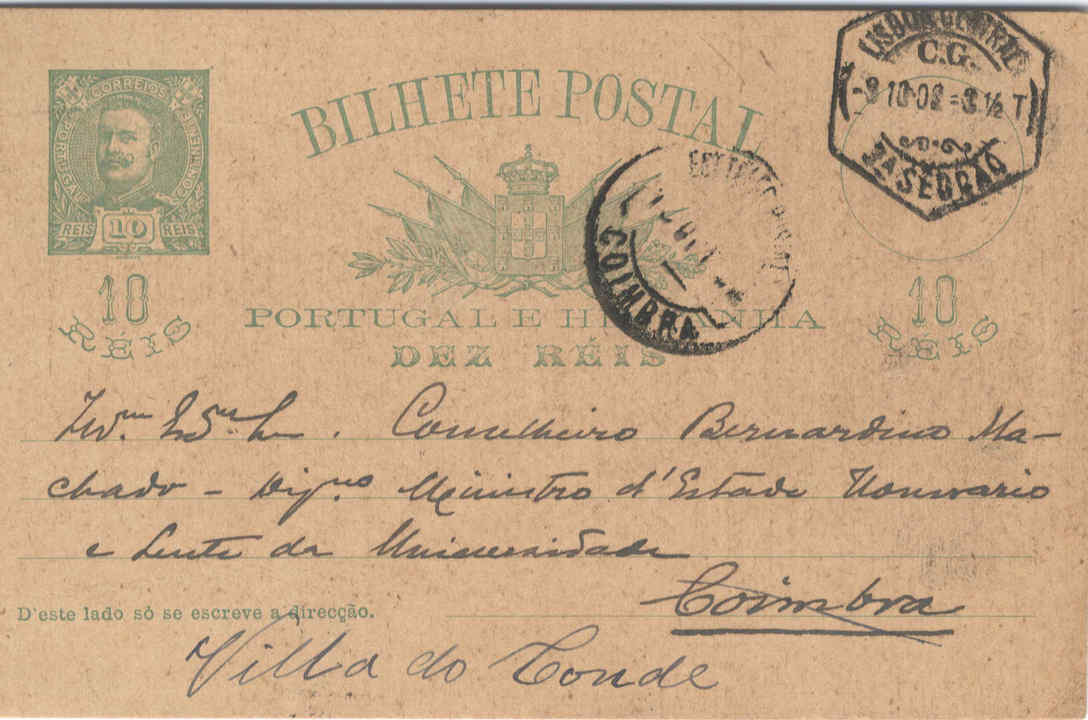 CORREIOS
PORTUGAL
CONTINENTE
REIS 10 REIS
BILHETE POSTAL
LISBOA CENTRAL
C.G.
3ª SECÇÃO
COIMBRA
10 RÉIS
PORTUGAL E HESPANHA
10 RÉIS
DEZ RÉIS
Conselheiro Bernardino Ma-
chado - Dig.no Ministro d'Estado Honorario
e Lente da Universidade
Coimbra
D'este lado só se escreve a direcção.
Villa do Conde